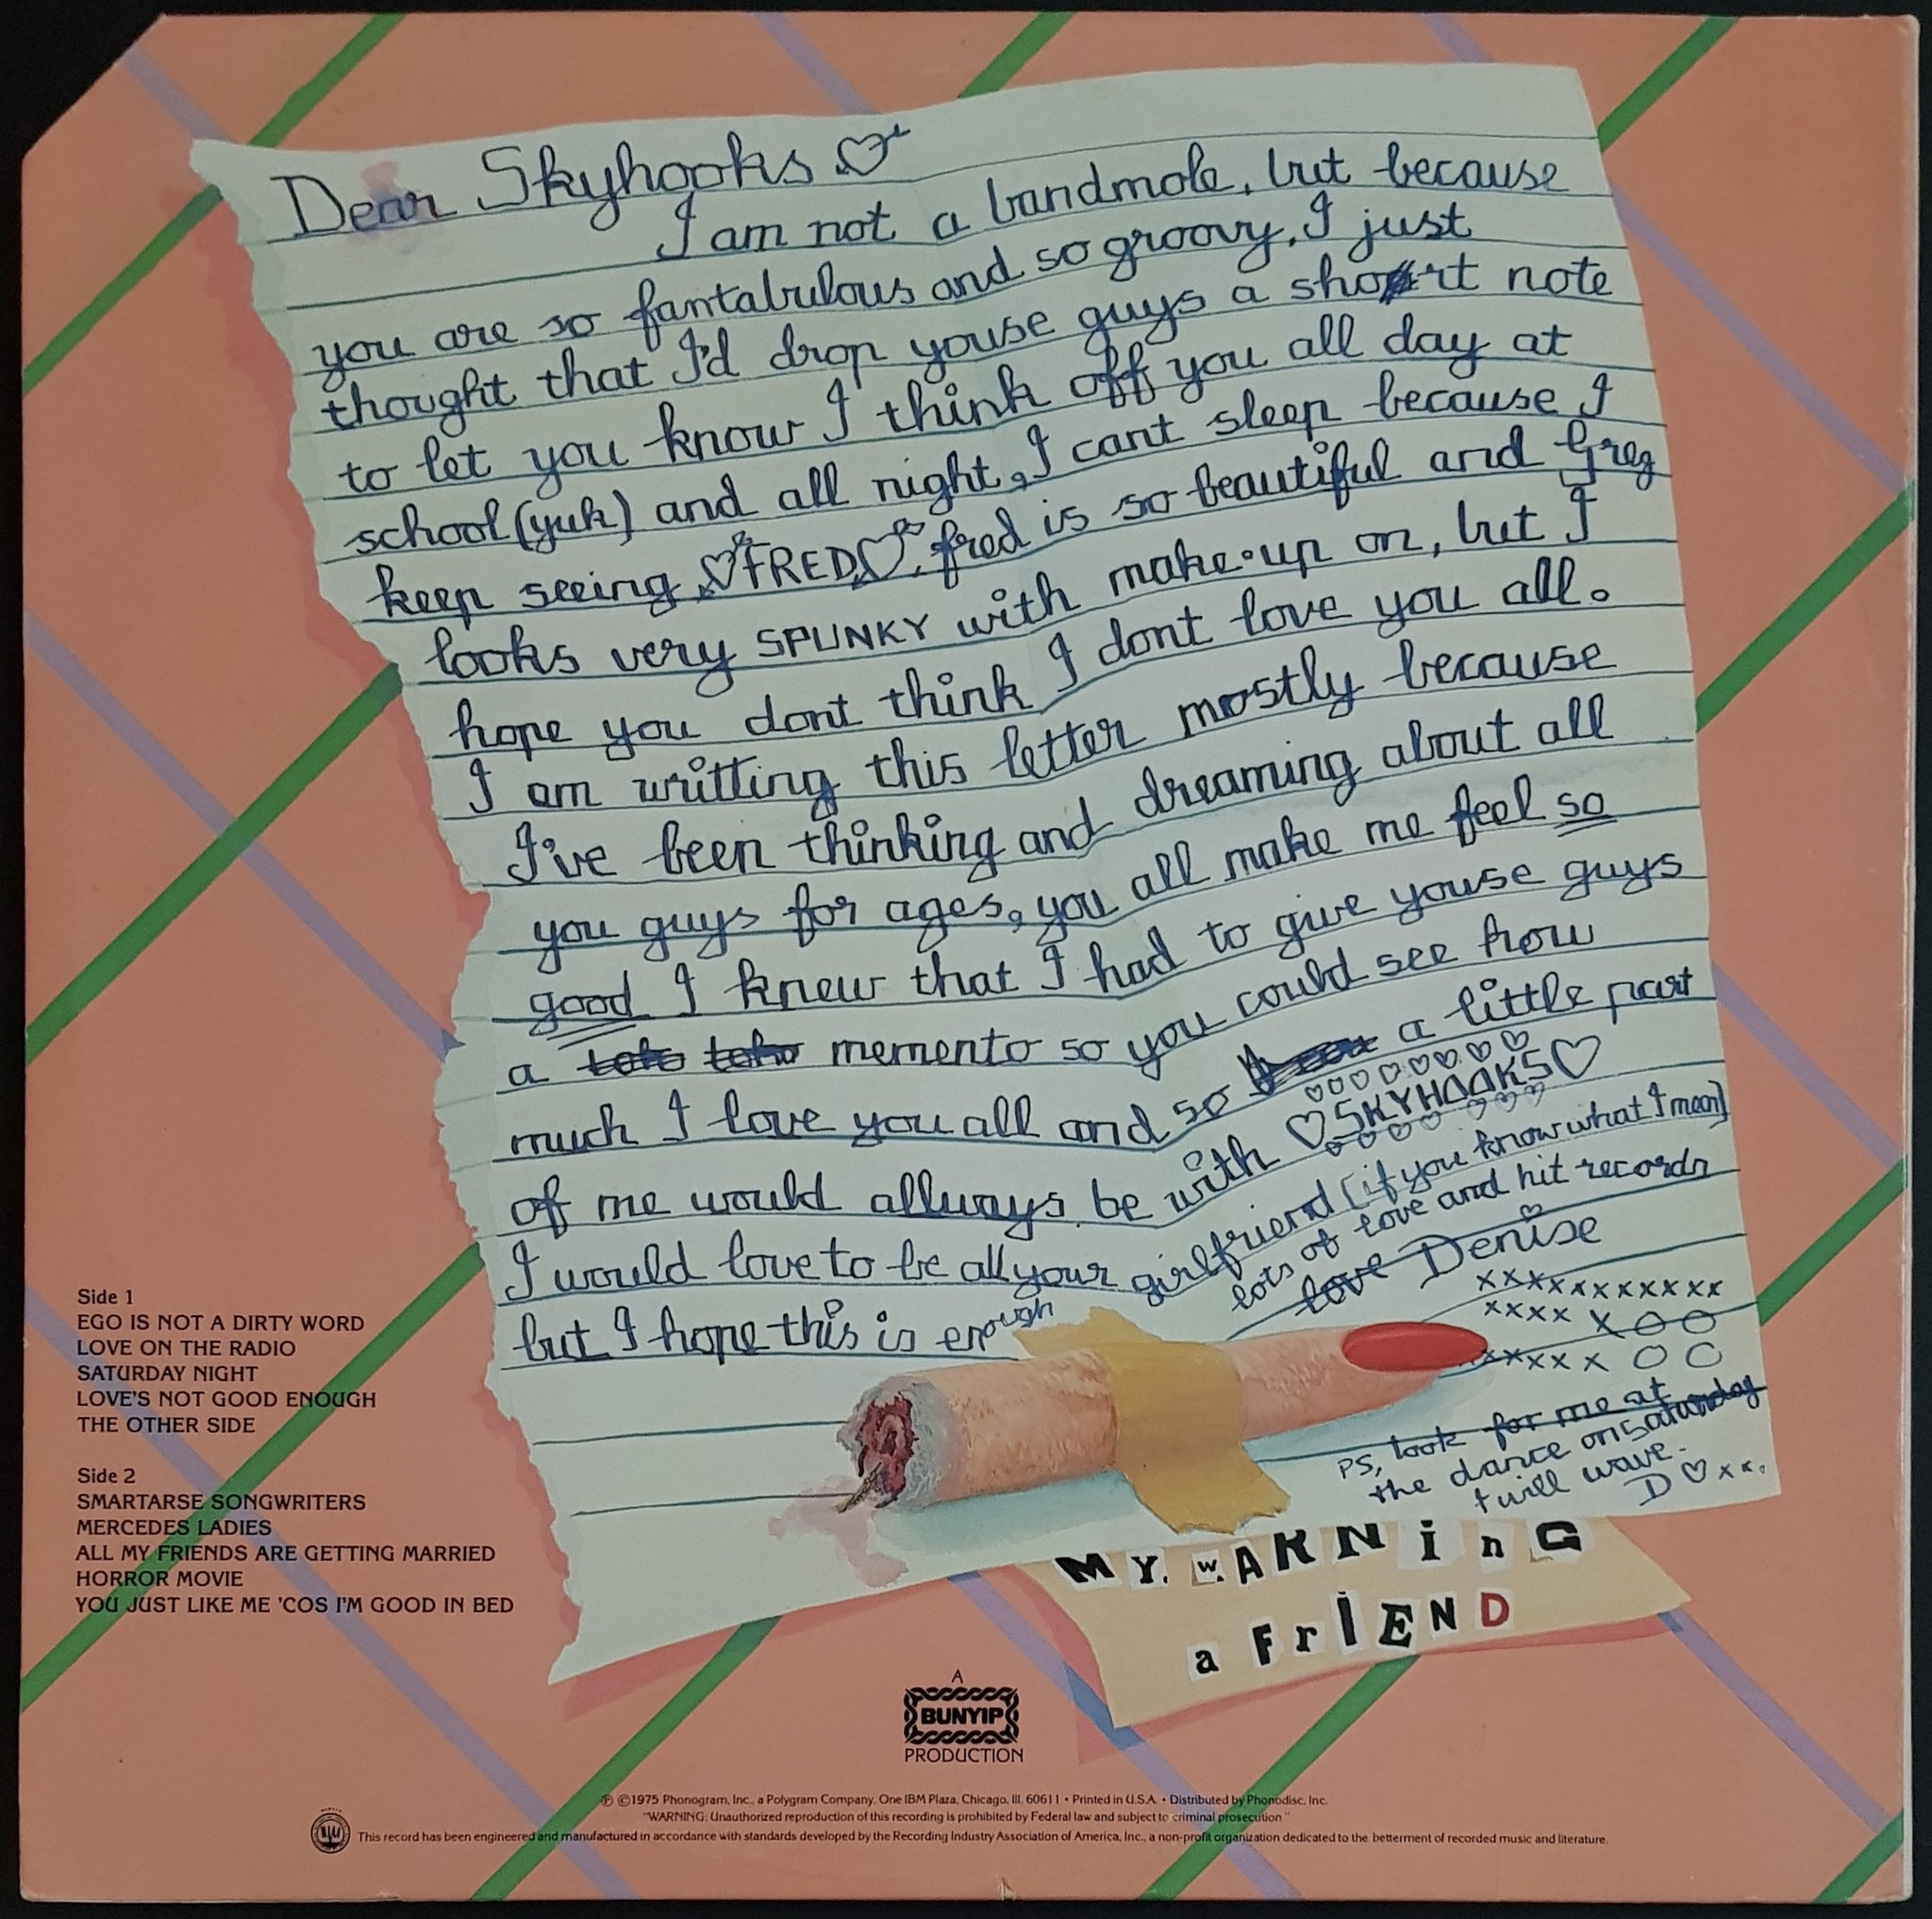 Dear Skyhooks
I am not a bandmole, but because
you are so fantabulous and so groovy, I just
thought that I'd drop youse guys a short note
to let you know I think off you all day at
school (yuk) and all night, I cant sleep because I
keep seeing FRED, fred is so beautiful and Greg
looks very SPUNKY with make-up on, but I
hope you dont think I dont love you all.
I am writting this letter mostly because
I've been thinking and dreaming about all
you guys for ages, you all make me feel so
good I knew that I had to give youse guys
a memento so you could see how
much I love you all and so a little part
of me would allways be with SKYHOOKS
I would love to be all your girlfriend (if you know what I mean)
but I hope this is enough
lots of love and hit records
love Denise
xxxxxxxxxxxx
xxxx X O O
xxxxx x O O
PS, look for me at
the dance on saturday
I will wave.
D xx.
MY. wARNinG
a FrIEND
Side 1
EGO IS NOT A DIRTY WORD
LOVE ON THE RADIO
SATURDAY NIGHT
LOVE'S NOT GOOD ENOUGH
THE OTHER SIDE
Side 2
SMARTARSE SONGWRITERS
MERCEDES LADIES
ALL MY FRIENDS ARE GETTING MARRIED
HORROR MOVIE
YOU JUST LIKE ME 'COS I'M GOOD IN BED
A
BUNYIP
PRODUCTION
℗ ©1975 Phonogram, Inc., a Polygram Company, One IBM Plaza, Chicago, Ill. 60611 • Printed in U.S.A. • Distributed by Phonodisc, Inc.
"WARNING: Unauthorized reproduction of this recording is prohibited by Federal law and subject to criminal prosecution"
This record has been engineered and manufactured in accordance with standards developed by the Recording Industry Association of America, Inc., a non-profit organization dedicated to the betterment of recorded music and literature.